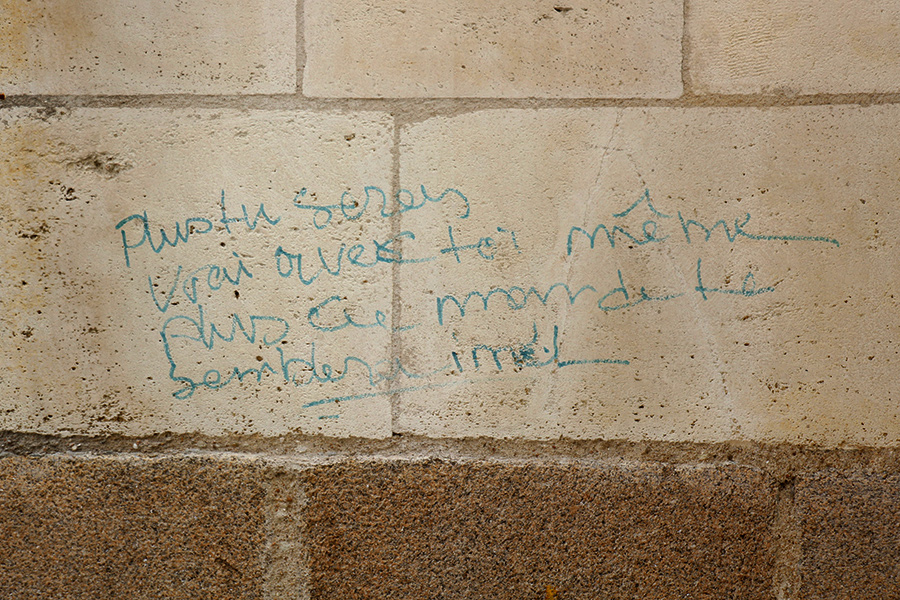 Plus tu seras
vrai avec toi même
Plus ce monde te
semblera